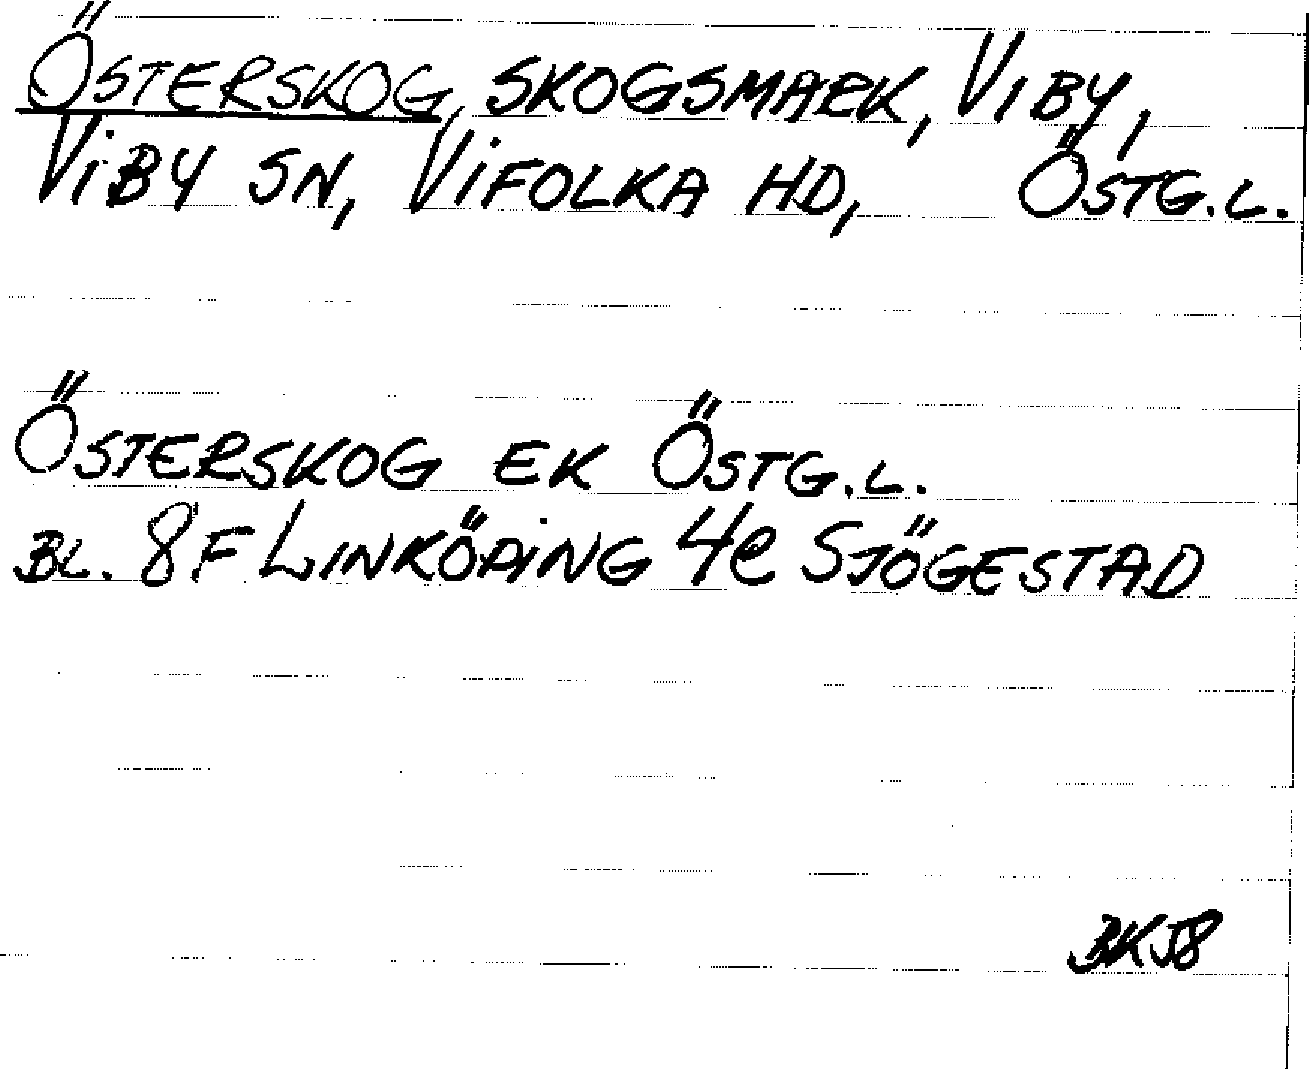 ÖSTERSKOG, SKOGSMARK, VIBY,
VIBY SN, VIFOLKA HD, ÖSTG.L.
ÖSTERSKOG EK ÖSTG.L.
BL. 8F LINKÖPING 4e SJÖGESTAD
BKJ8